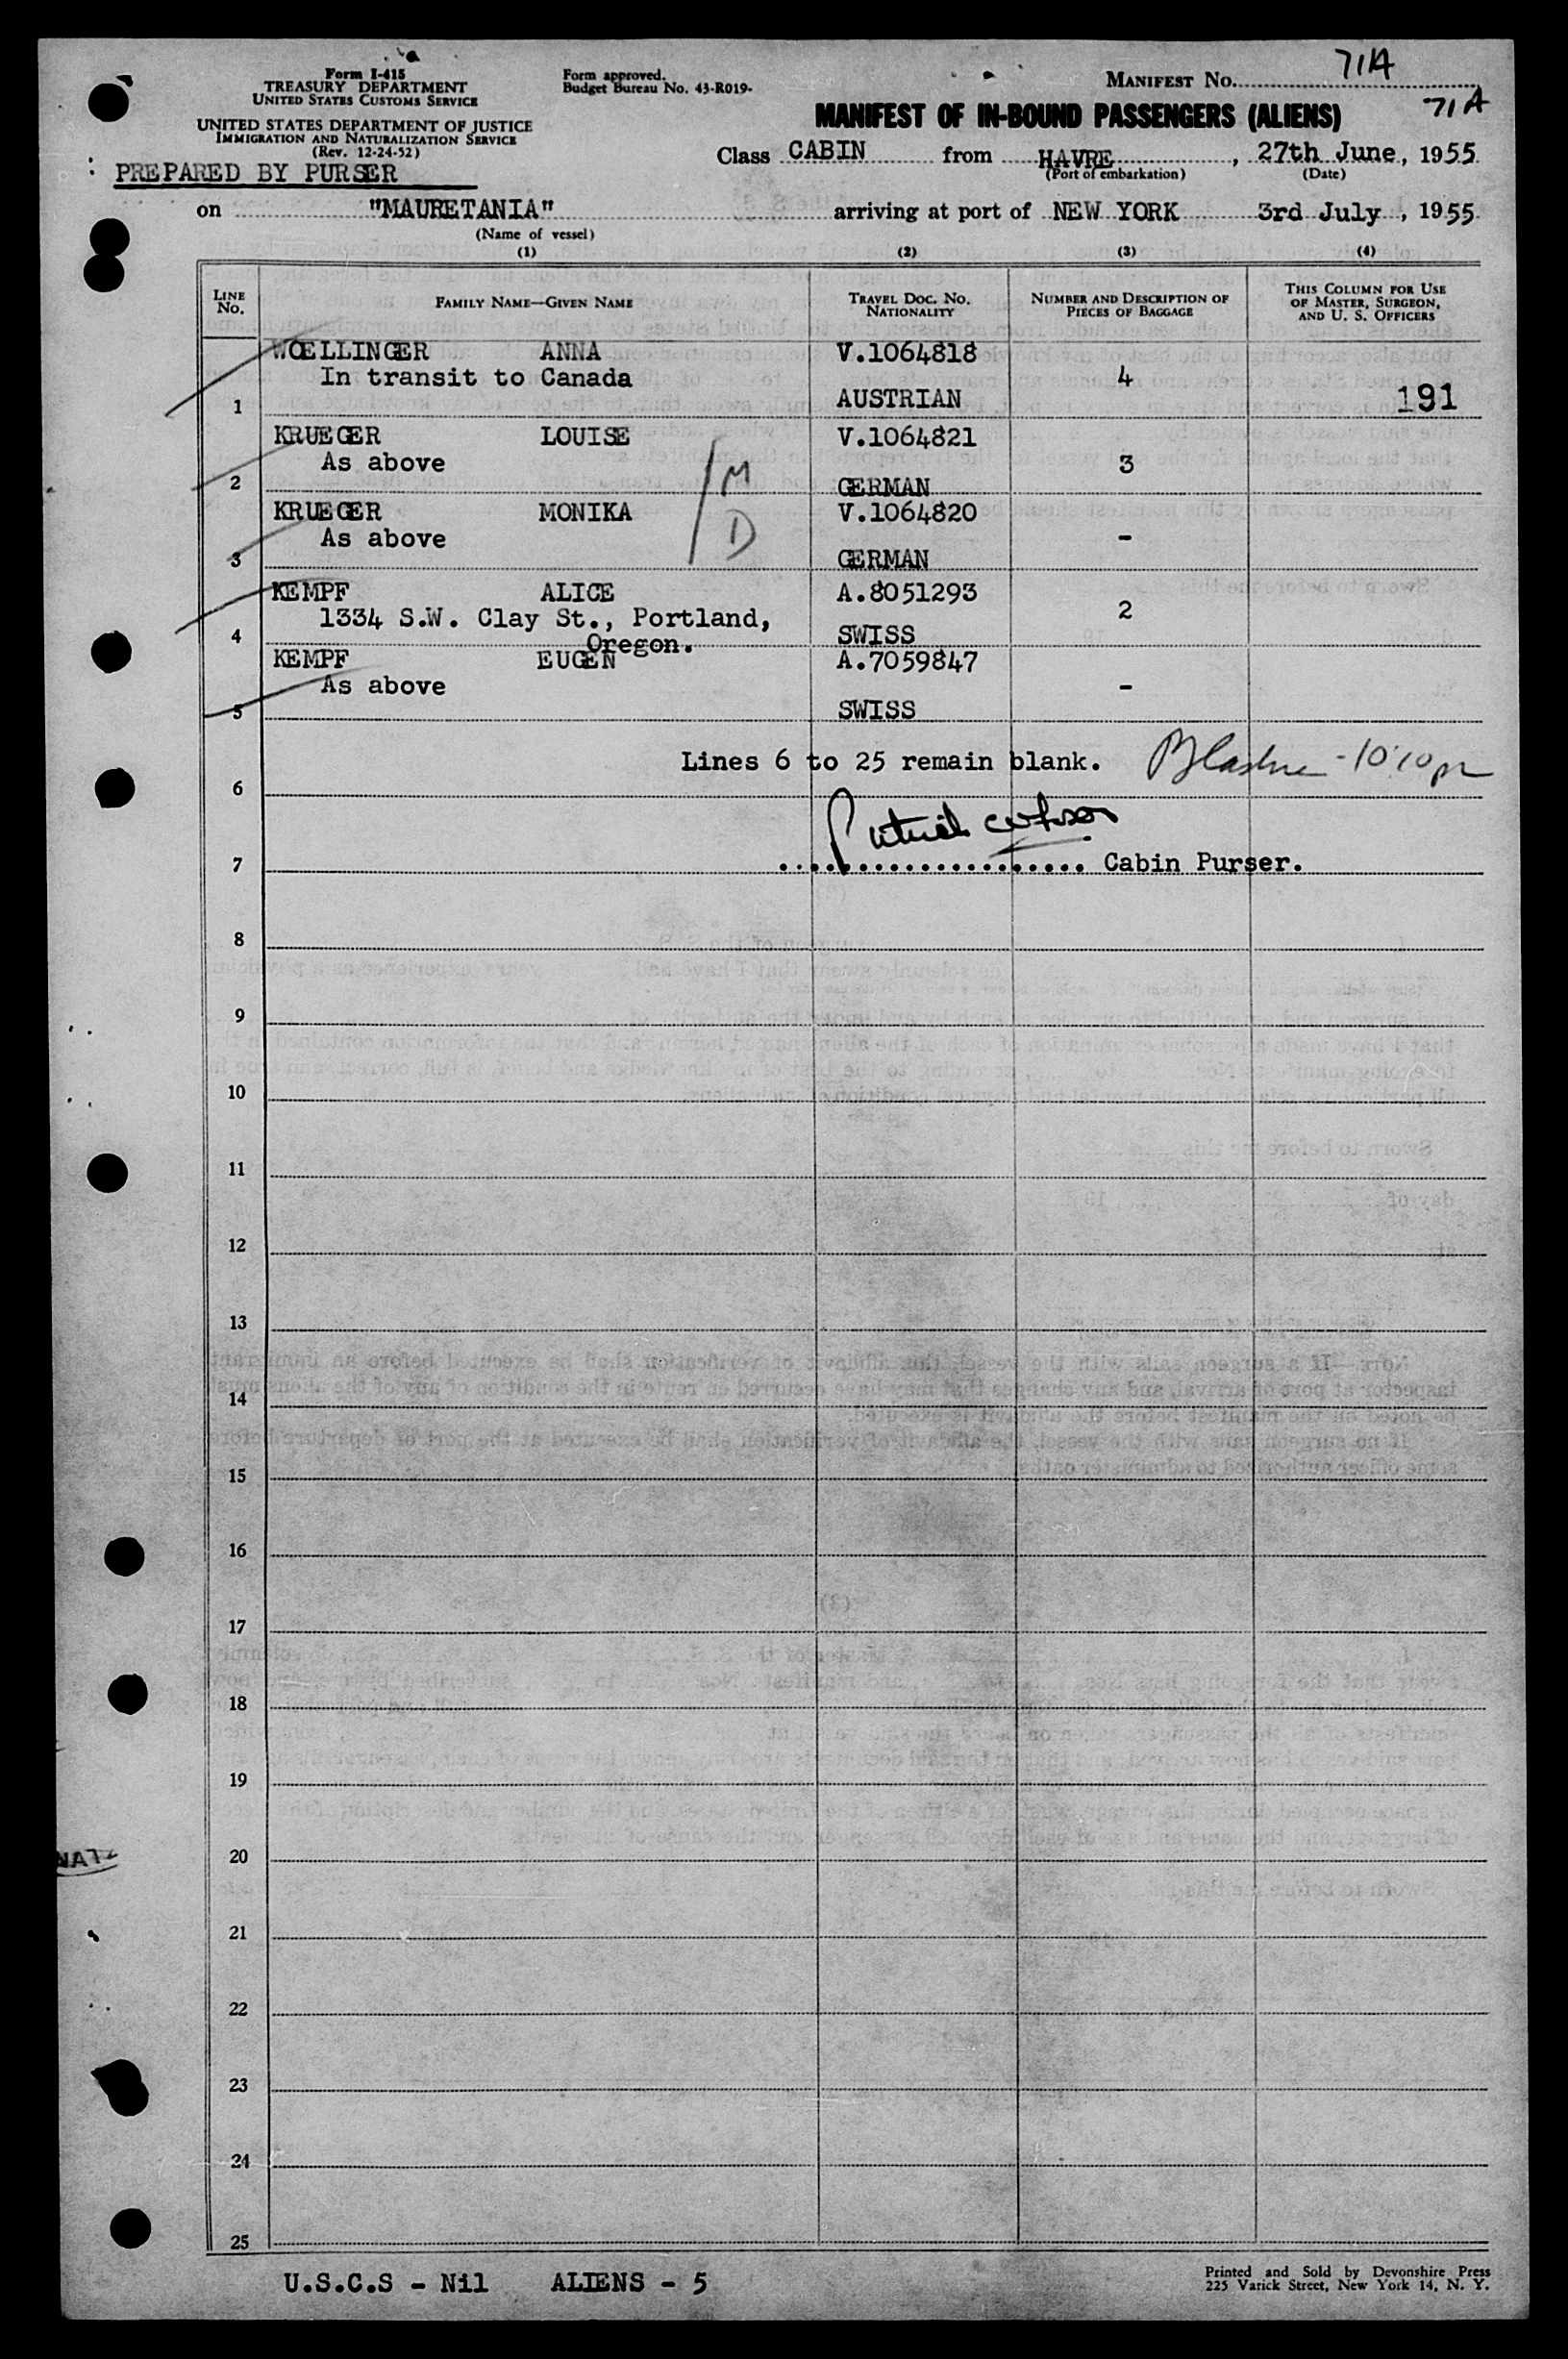 Form I-415
TREASURY DEPARTMENT
UNITED STATES CUSTOMS SERVICE
UNITED STATES DEPARTMENT OF JUSTICE
IMMIGRATION AND NATURALIZATION SERVICE
(Rev. 12-24-52)
PREPARED BY PURSER
Form approved.
Budget Bureau No. 43-R019-
MANIFEST NO. 71A
71A
MANIFEST OF IN-BOUND PASSENGERS (ALIENS)
Class CABIN from HAVRE, 27th June, 1955
(Port of embarkation) (Date)
on "MAURETANIA" arriving at port of NEW YORK 3rd July, 1955
(Name of vessel)
(1) (2) (3) (4)
LINE NO. FAMILY NAME—GIVEN NAME TRAVEL DOC. NO. NATIONALITY NUMBER AND DESCRIPTION OF PIECES OF BAGGAGE THIS COLUMN FOR USE OF MASTER, SURGEON, AND U. S. OFFICERS
WOELLINGER ANNA V.1064818
In transit to Canada 4
1 AUSTRIAN 191
KRUEGER LOUISE V.1064821
As above M 3
2 GERMAN
KRUEGER MONIKA V.1064820
As above D -
3 GERMAN
KEMPF ALICE A.8051293
1334 S.W. Clay St., Portland, 2
4 Oregon. SWISS
KEMPF EUGEN A.7059847
As above -
5 SWISS
Lines 6 to 25 remain blank. 10:10pm
6
7 Cabin Purser.
8
9
10
11
12
13
14
15
16
17
18
19
20
21
22
23
24
25
U.S.C.S - Nil ALIENS - 5
Printed and Sold by Devonshire Press
225 Varick Street, New York 14, N. Y.